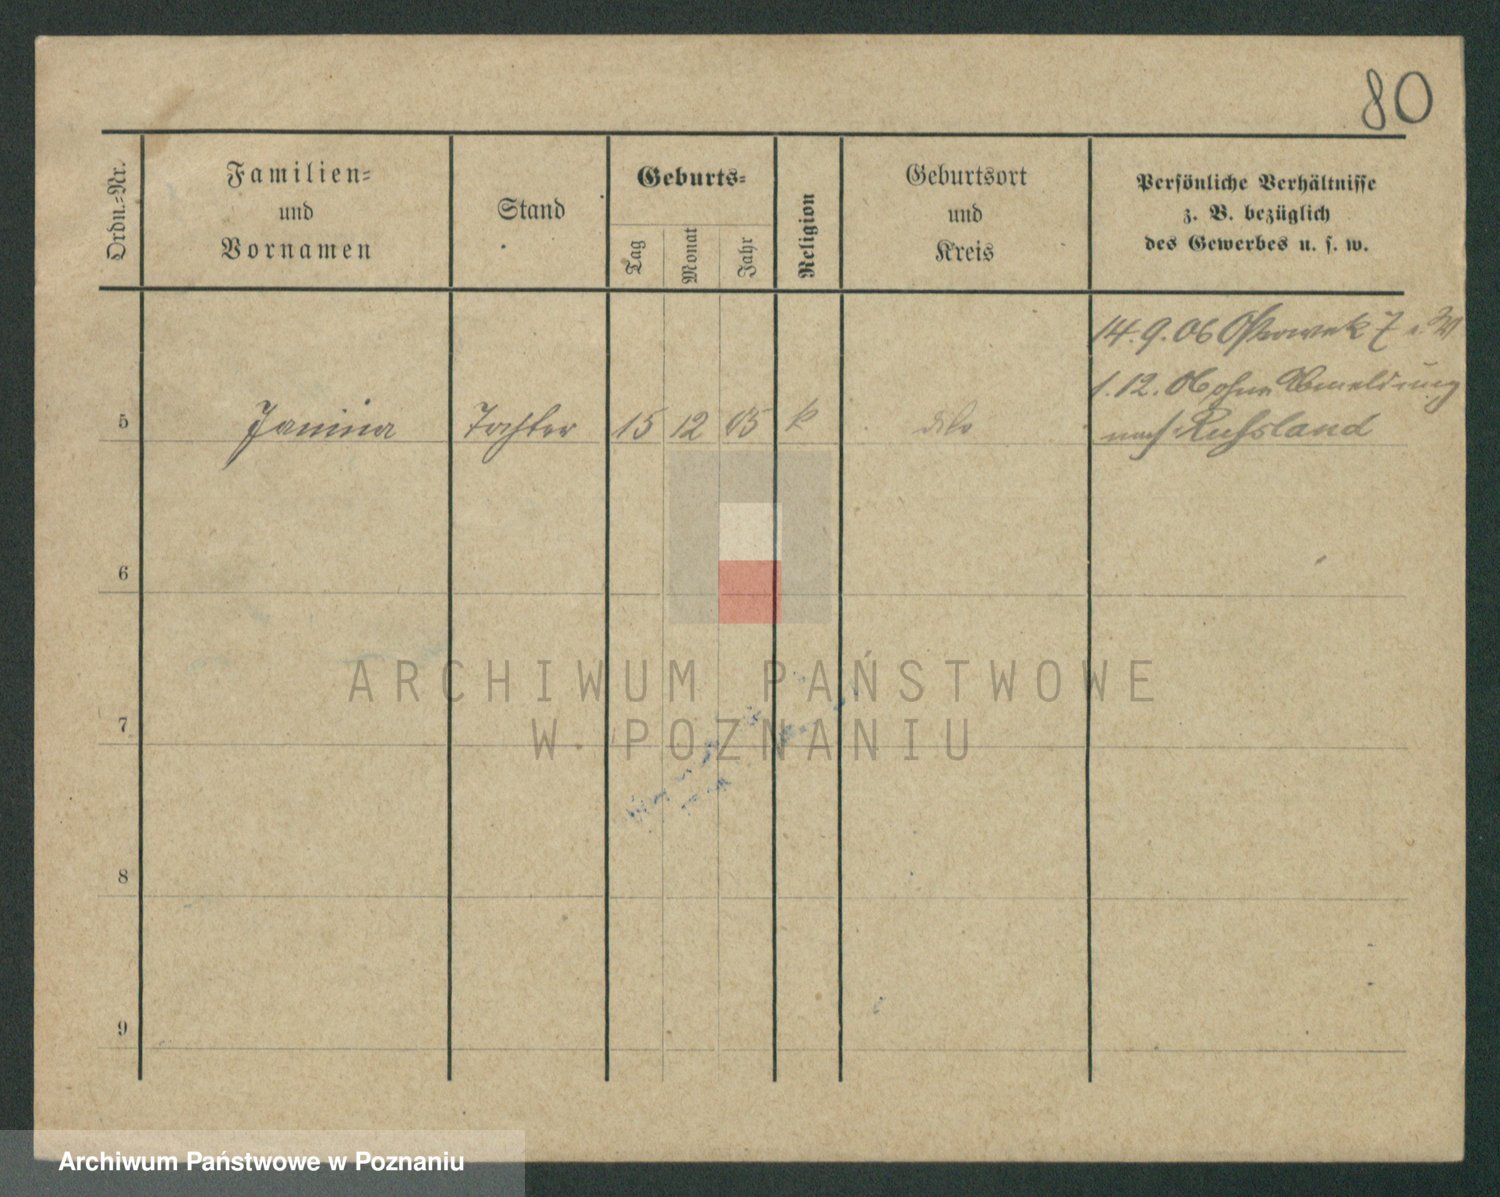 80
Ordn.-Nr.
Familien-
und
Vornamen
Stand
Geburts-
Tag
Monat
Jahr
Religion
Geburtsort
und
Kreis
Persönliche Verhältnisse
z. B. bezüglich
des Gewerbes u. s. w.
14. 9. 06 Ostrowek 7
1. 12. 06 ohne Abmeldung
5 Janina Tochter 15 12 05 k dito nach Russland
6
7
8
9
ARCHIWUM PAŃSTWOWE
W POZNANIU
Archiwum Państwowe w Poznaniu